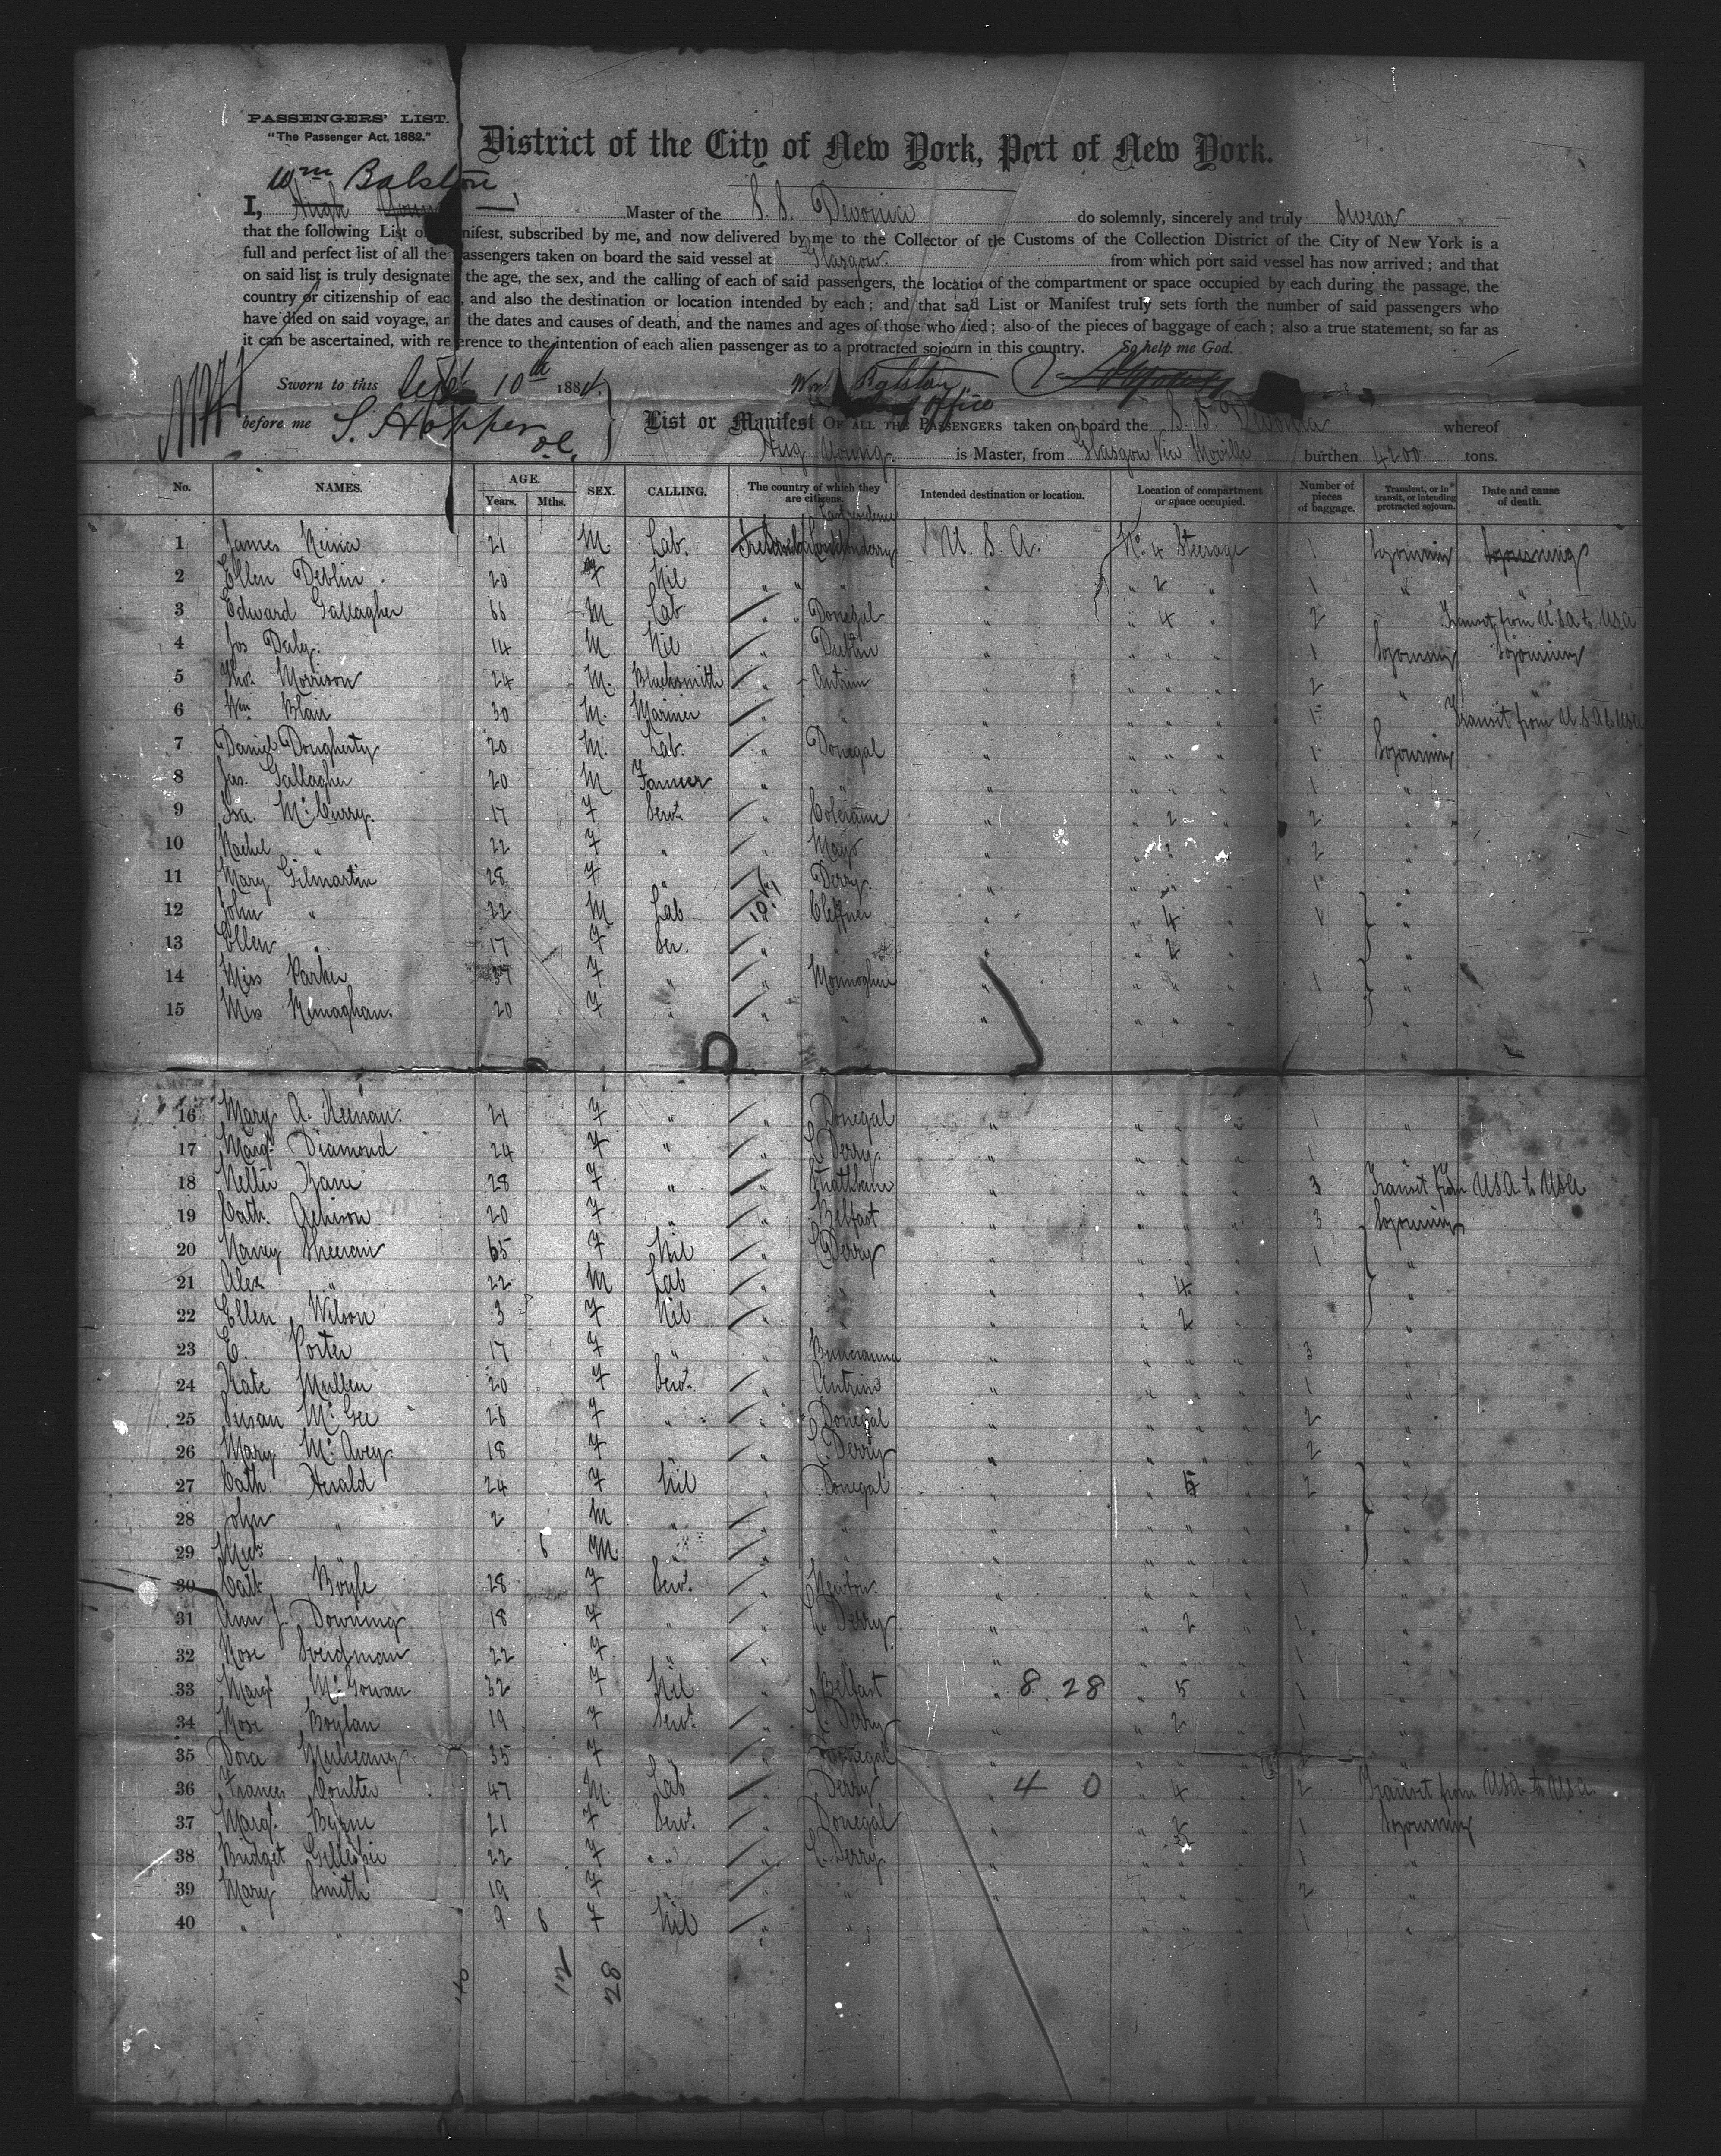 PASSENGERS' LIST.
"The Passenger Act, 1882."
District of the City of New York, Port of New York.
Wm Balston
I, Hugh Young Master of the S. S. Devonia do solemnly, sincerely and truly swear
that the following List or Manifest, subscribed by me, and now delivered by me to the Collector of the Customs of the Collection District of the City of New York is a
full and perfect list of all the passengers taken on board the said vessel at Glasgow. from which port said vessel has now arrived; and that
on said list is truly designated the age, the sex, and the calling of each of said passengers, the location of the compartment or space occupied by each during the passage, the
country or citizenship of each, and also the destination or location intended by each; and that said List or Manifest truly sets forth the number of said passengers who
have died on said voyage, and the dates and causes of death, and the names and ages of those who died; also of the pieces of baggage of each; also a true statement, so far as
it can be ascertained, with reference to the intention of each alien passenger as to a protracted sojourn in this country. So help me God.
Sworn to this Sept 10th 1884. Wm Balston
before me S. Hopper D.C.
List or Manifest OF ALL THE PASSENGERS taken on board the S. S. Devonia whereof
Hug Young. is Master, from Glasgow Via Moville burthen 4200 tons.
No. NAMES. AGE. Years. Mths. SEX. CALLING. The country of which they are citizens. Intended destination or location. Location of compartment or space occupied. Number of pieces of baggage. Transient, or in transit, or intending protracted sojourn. Date and cause of death.
1 James 21 M. Lab. Ireland Londonderry U. S. A. No. 4 Steerage 1 Sojourning Sojourning
2 Ellen Deblin 20 F Nil " " " " 2 " 1 " "
3 Edward Gallagher 66 M Lab " " Donegal " " 4 " 2 Transit from USA to USA
4 Jos Daly. 14 M Nil " Dublin " " " " 1 Sojourning Sojourning
5 Thos. Morrison 24 M. Blacksmith " Antrim " " " " 2 " "
6 Wm Blair 30 M. Mariner " " " " " " 1 Transit from USA to USA
7 Daniel Dougherty 20 M. Lab. " Donegal " " " " 1 Sojourning
8 Jas. Gallagher 20 M Farmer " " " " " " 1 "
9 Isa. McCurry. 17 F Servt. " Coleraine " " 2 " 2 "
10 Rachel " 22 F " " Mayo " " 2 " 2 "
11 Mary Gilmartin 28 F " " Derry. " " " " 1 "
12 John " 22 M Lab " " " 4 " 1 "
13 Ellen " 17 F Ser. " " " " 2 " "
14 Miss Parker F " " " " " " 1 "
15 Miss 20 F " " " " " " " "
16 Mary A. Keenan. 21 F " " Donegal " " " " 1 "
17 Margt. Diamond 24 F " " L Derry. " " " " 1 "
18 Nellie Kane 28 F " " Strathbane " " " " 3 Transit from USA to USA
19 Cath. Acheson 20 F " " Belfast " " " " 3 Sojourning
20 Nancy Sheeran 65 F Nil " L Derry " " " " 1 "
21 Alex " 22 M Lab " " " " 4 "
22 Ellen Wilson 3 F Nil " " " " 2 " "
23 E. Porter 17 F " " Buncranna " " " " 3 "
24 Kate Mullen 20 F Servt. " Antrim " " " " 1 "
25 Susan McGee 26 F " " Donegal " " " " 2 "
26 Mary McAvey. 18 F " " L Derry " " " " 2 "
27 Cath. Herald 24 F Nil " Donegal " " 5 " 2 "
28 John " 2 M " " " " " " "
29 Mich. " 6 M. " " " " " " " "
30 Cath Boyle 28 F Servt. " " " " " 1 "
31 Ann J. Downing 18 F " " L. Derry " " 2 " 1 "
32 Rose 22 F " " " " " " " 1 "
33 Margt McGowan 32 F Nil " Belfast " 8.28 " 5 " 1 "
34 Rose Boylan 19 F Servt " L. Derry " " 2 " 1 "
35 Dora 35 F " " Donegal " " " " 2 "
36 Frances Coulter 47 M. Lab " Derry " 4 0 " 4 " 2 Transit from USA to USA.
37 Margt. Byrne 21 F Servt. " Donegal " " " 1 Sojourning
38 Bridget Gillespie 22 F " " L. Derry " " " " 1 "
39 Mary Smith 19 F " " " " " " " 2 "
40 " " 9 6 F Nil " " " " " " 1 "